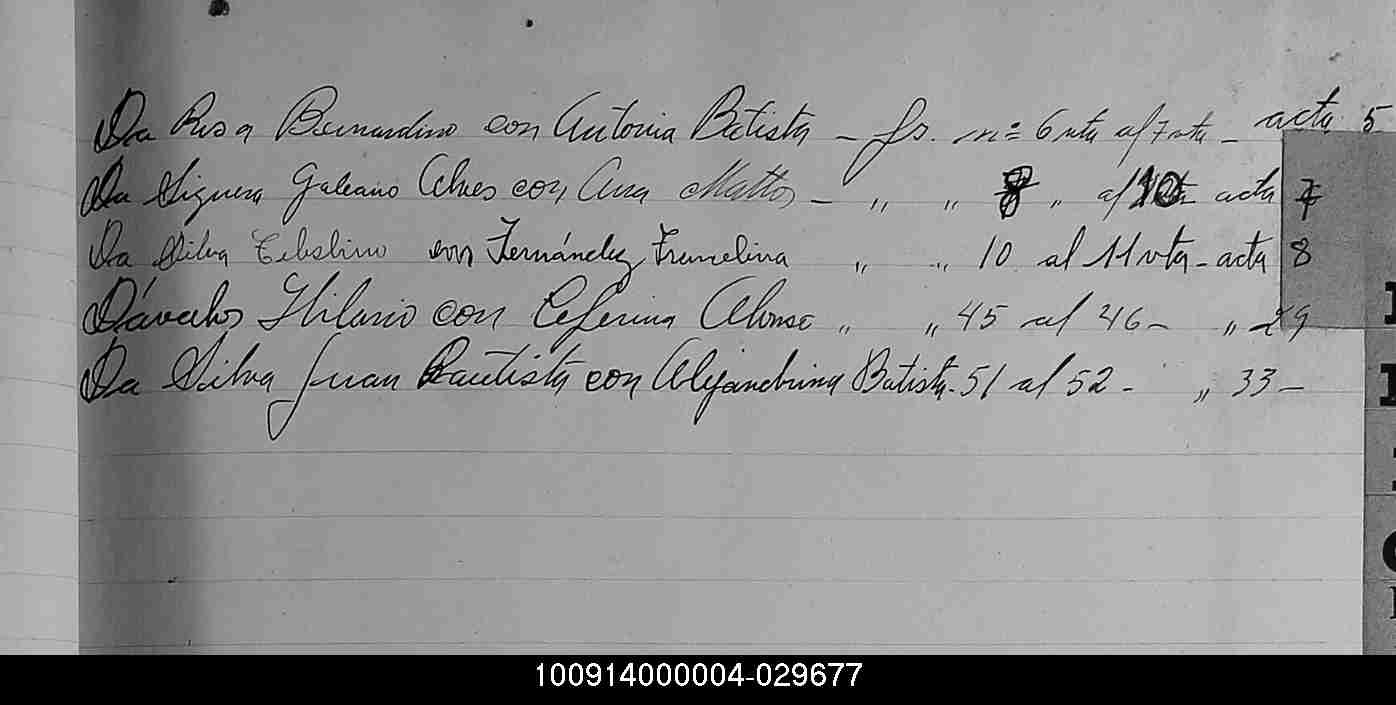 Da Rosa Bernardino con Antonia Batista - fs. nº 6 vta al 7 vta - acta 5
Da Siguera Galeano Alves con Ana Mattos - " " 8 " al 10 acta 7
Da Silva Celestino con Fernández Francelina " " 10 al 11 vta - acta 8
Dávalos Hilario con Ceferina Alonso " " 45 al 46 - " 29
Da Silva Juan Bautista con Alejandrina Batista - 51 al 52 - " 33 -
100914000004-029677